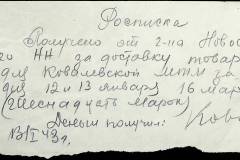 Росписка
Получено от г-на Новос
го НН за доставку товар
для Ковалевской МТМ за
дня 12 и 13 января 16 мар
(Шеснадцать марок)
Деньги получил: Кова
13/I 43г.